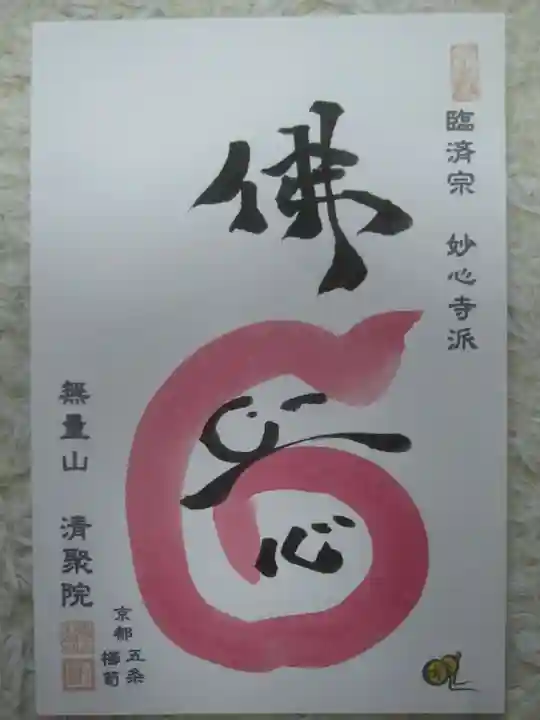 臨済宗 妙心寺派
佛
心
無量山 清聚院
京都
五条